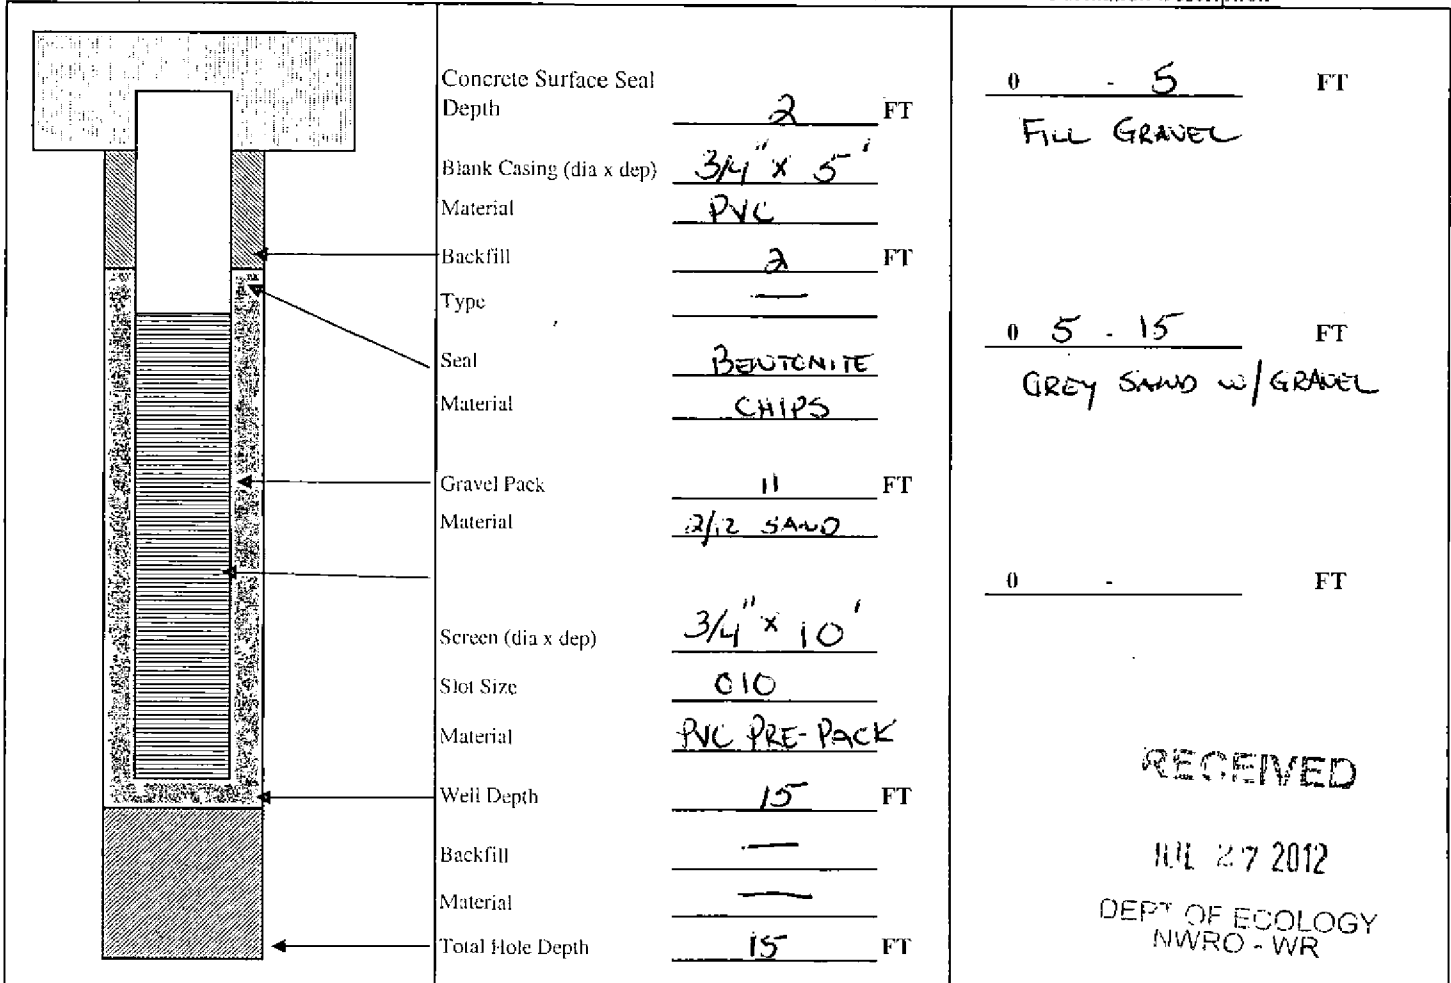 Concrete Surface Seal
Depth 2 FT
Blank Casing (dia x dep) 3/4" x 5'
Material PVC
Backfill 2 FT
Type —
Seal BENTONITE
Material CHIPS
Gravel Pack 11 FT
Material 2/12 SAND
Screen (dia x dep) 3/4" x 10'
Slot Size 010
Material PVC PRE-PACK
Well Depth 15 FT
Backfill —
Material —
Total Hole Depth 15 FT
0 - 5 FT
FILL GRAVEL
0 5 - 15 FT
GREY SAND w/ GRAVEL
0 - FT
RECEIVED
JUL 27 2012
DEPT OF ECOLOGY
NWRO - WR